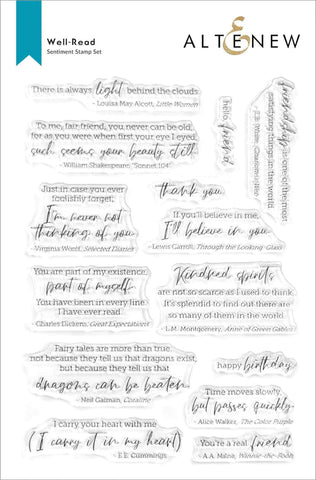 Well-Read
Sentiment Stamp Set
ALTENEW
There is always light behind the clouds
- Louisa May Alcott, Little Women
hello
friend
friendship is one of the most
satisfying things in the world
- E.B. White,
To me, fair friend, you never can be old,
for as you were when first your eye I eyed,
such seems your beauty still.
- William Shakespeare, "Sonnet 104"
Just in case you ever
foolishly forget,
I'm never not
thinking of you
- Virginia Woolf, Selected Diaries
thank you
If you'll believe in me,
I'll believe in you
- Lewis Carroll, Through the Looking-Glass
You are part of my existence,
part of myself.
You have been in every line
I have ever read.
Charles Dickens, Great Expectations
Kindred spirits
are not so scarce as I used to think.
It's splendid to find out there are
so many of them in the world.
- L.M. Montgomery, Anne of Green Gables
Fairy tales are more than true,
not because they tell us that dragons exist,
but because they tell us that
dragons can be beaten.
Neil Gaiman, Coraline
happy birthday
Time moves slowly,
but passes quickly
Alice Walker, The Color Purple
I carry your heart with me
(I carry it in my heart)
- E.E. Cummings
You're a real friend
- A.A. Milne, Winnie-the-Pooh